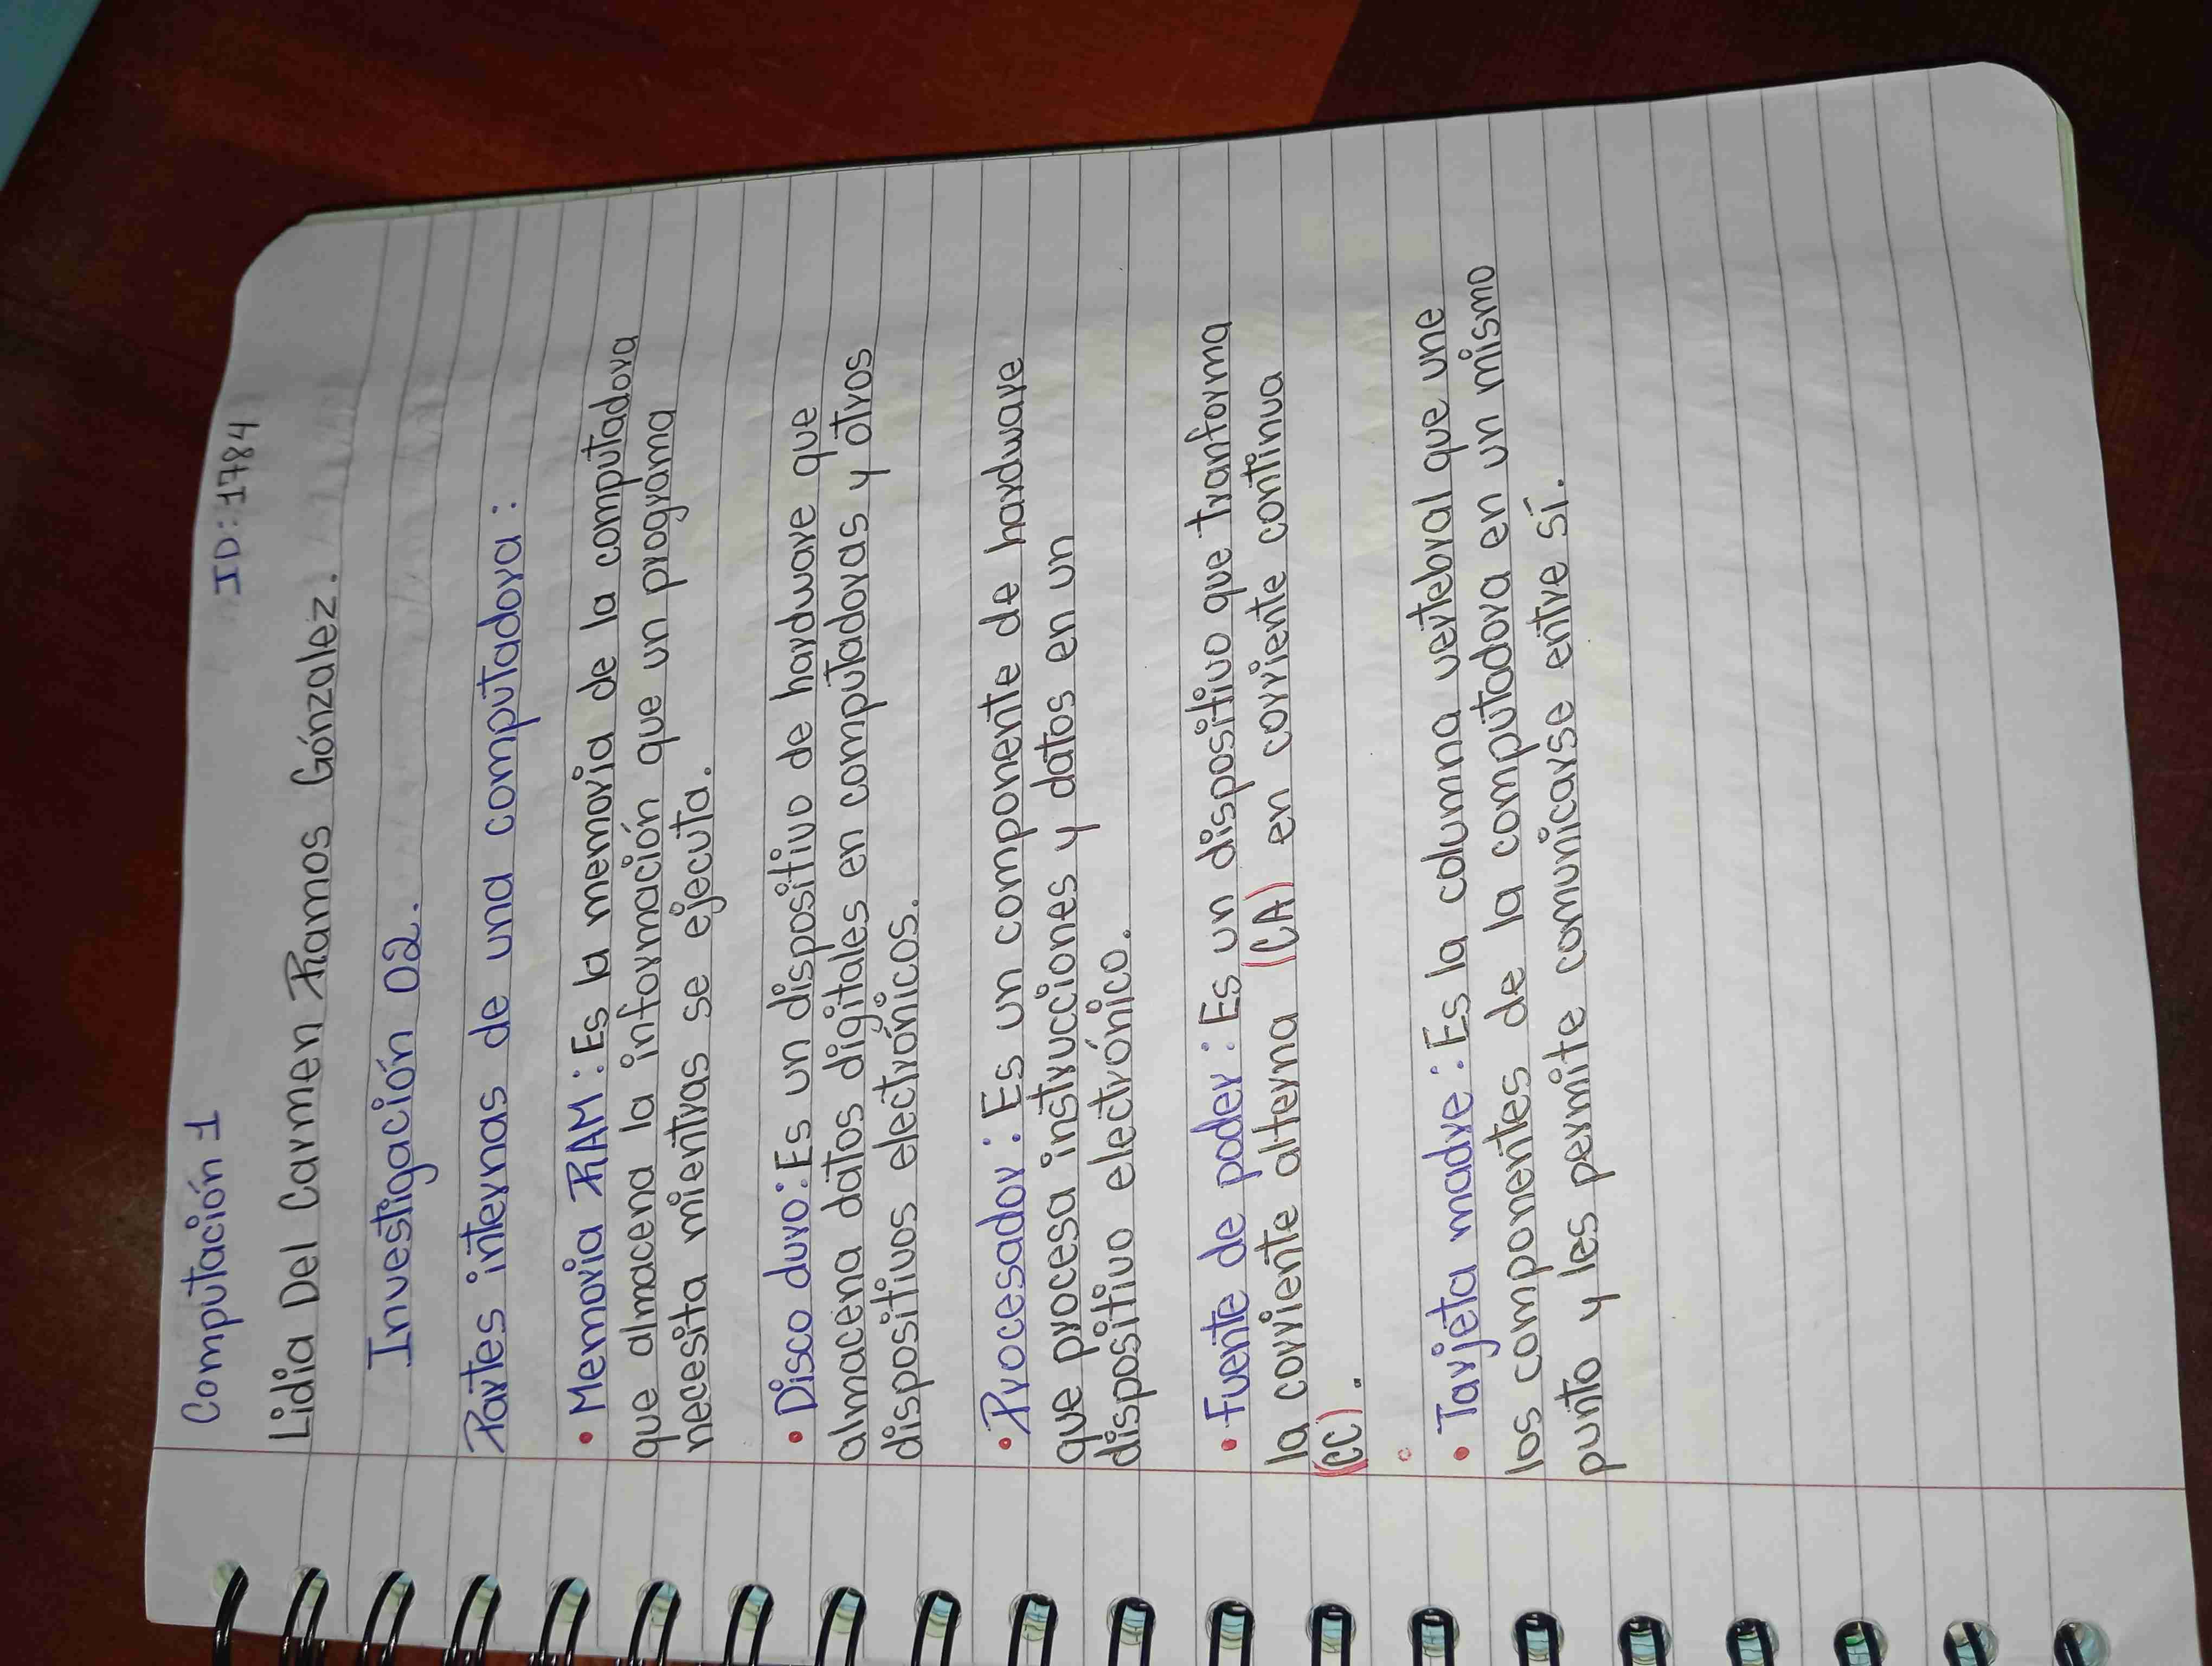 Computación 1 ID: 1784
Lidia Del Carmen Ramos Gónzalez.
Investigación 02.
Partes internas de una computadora:
• Memoria RAM: Es la memoria de la computadora
que almacena la información que un programa
necesita mientras se ejecuta.
• Disco duro: Es un dispositivo de hardware que
almacena datos digitales en computadoras y otros
dispositivos electrónicos.
• Procesador: Es un componente de hardware
que procesa instrucciones y datos en un
dispositivo electrónico.
• Fuente de poder: Es un dispositivo que tranforma
la corriente alterna (CA) en corriente continua
(CC).
• Tarjeta madre: Es la columna vertebral que une
los componentes de la computadora en un mismo
punto y les permite comunicarse entre sí.